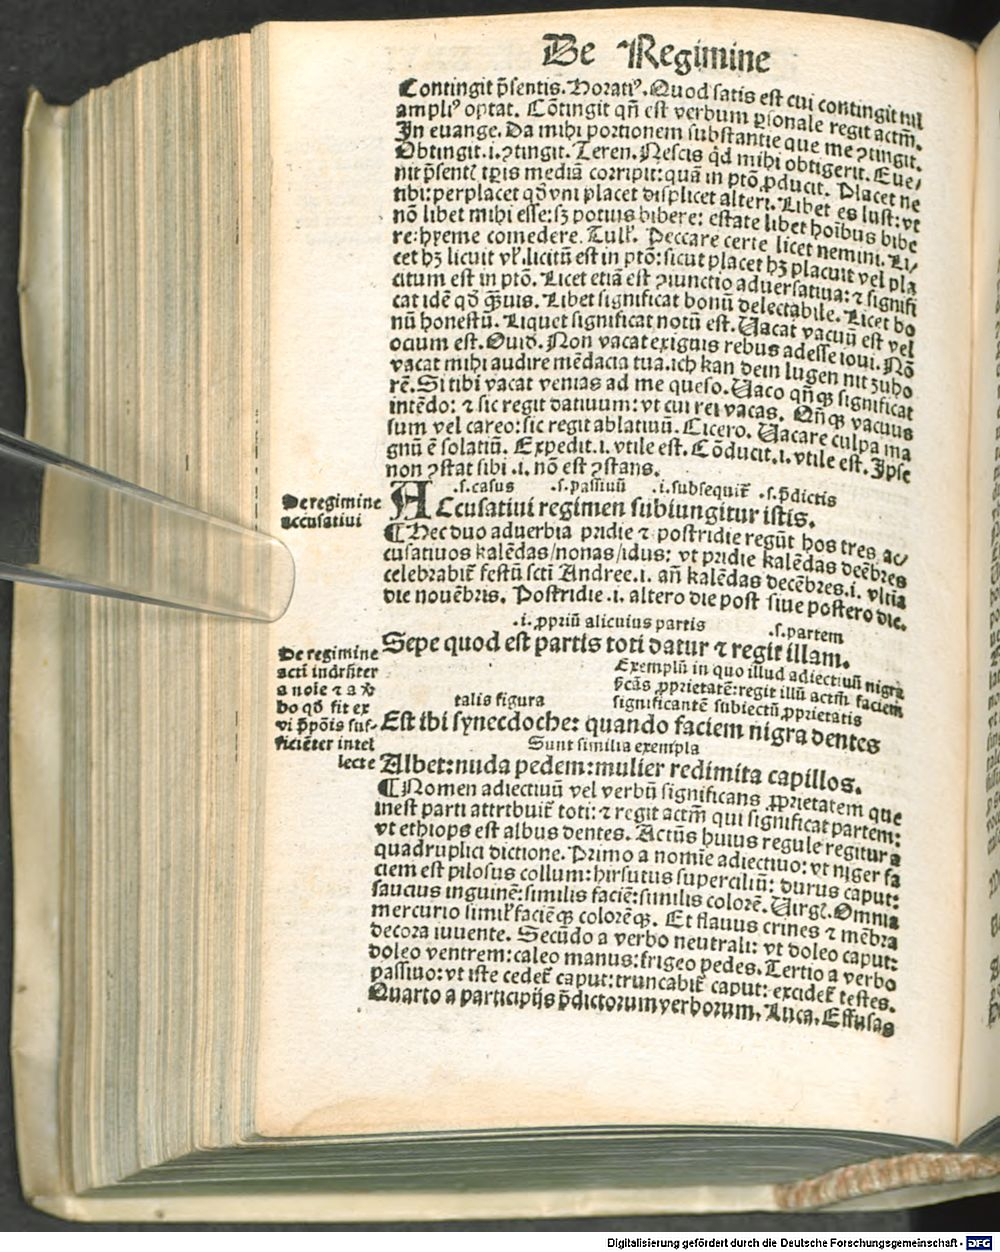 De Regimine
Contingit p̄sentis. Horatiꝰ. Quod satis est cui contingit nil
ampliꝰ optat. Cōtingit qn̄ est verbum ꝑsonale regit actm̄.
In euange. Da mihi portionem substantie que me ꝯtingit.
Obtingit .i. ꝯtingit. Teren. Nescis qd̄ mihi obtigerit. Eue/
nit p̄sentꝭ tꝑis mediā corripit: quā in ptō ꝓducit. Placet ne
tibi: perplacet qd̄ vni placet displicet alteri. Libet es lust: vt
nō libet mihi esse: sꝫ potius bibere: estate libet hoībus bibe
re: hyeme comedere. Tull̓. Peccare certe licet nemini. Li/
cet hꝫ licuit vl̓ .licitū est in ptō: sicut placet hꝫ placuit vel pla
citum est in ptō. Licet etiā est ꝯiunctio aduersatiua: ⁊ signifi
cat idē qd̄ q̄ꝫuis. Libet significat bonū delectabile. Licet bo
nū honestū. Liquet significat notū est. Vacat vacuū est vel
ocium est. Ouid. Non vacat exiguis rebus adesse ioui. Nō
vacat mihi audire mēdacia tua. ich kan dein lugen nit zuho
rē. Si tibi vacat venias ad me queso. Vaco qn̄qꝫ significat
intēdo: ⁊ sic regit datiuum: vt cui rei vacas. Qn̄qꝫ vacuus
sum vel careo: sic regit ablatiuū. Cicero. Vacare culpa ma
gnū ē solatiū. Expedit .i. vtile est. Cōducit .i. vtile est. Ipse
non ꝯstat sibi .i. nō est ꝯstans.
.s. casus .s. passiuū .i. subsequit̄ .s. p̄dictis
De regimine
accusatiui
Accusatiui regimen subiungitur istis.
¶ Hec duo aduerbia pridie ⁊ postridie regūt hos tres ac/
cusatiuos kalēdas/nonas/idus: vt pridie kalēdas decēbres
celebrabit̄ festū scti Andree .i. an̄ kalēdas decēbres .i. vltia
die nouēbris. Postridie .i. altero die post siue postero die.
.i. ꝓpriū alicuius partis .s. partem
Sepe quod est partis toti datur ⁊ regit illam.
De regimine
acti indr̄nter
a noīe ⁊ a v̄
bo qd̄ fit ex
vi p̄pōis suf-
ficiēter intel
lecte
Exemplū in quo illud adiectiuū nigra
significantē subiectū ꝓprietatis
talis figura
Est ibi synecdoche: quando faciem nigra dentes
Sunt similia exempla
Albet: nuda pedem: mulier redimita capillos.
¶ Nomen adiectiuū vel verbū significans ꝓprietatem que
inest parti attribuit̄ toti: ⁊ regit actm̄ qui significat partem:
vt ethiops est albus dentes. Actūs huius regule regitur a
quadruplici dictione. Primo a nomīe adiectiuo: vt niger fa
ciem est pilosus collum: hirsutus superciliū: durus caput:
saucius inguinē: similis faciē: similis colorē. Virgꝭ. Omnia
mercurio simil̓ faciēqꝫ colorēqꝫ. Et flauus crines ⁊ mēbra
decora iuuente. Secūdo a verbo neutrali: vt doleo caput:
doleo ventrem: caleo manus: frigeo pedes. Tertio a verbo
passiuo: vt iste cedet̄ caput: truncabit̄ caput: excidet̄ testes.
Quarto a participijs p̄dictorum verborum. Luca. Effusas
Digitalisierung gefördert durch die Deutsche Forschungsgemeinschaft - DFG